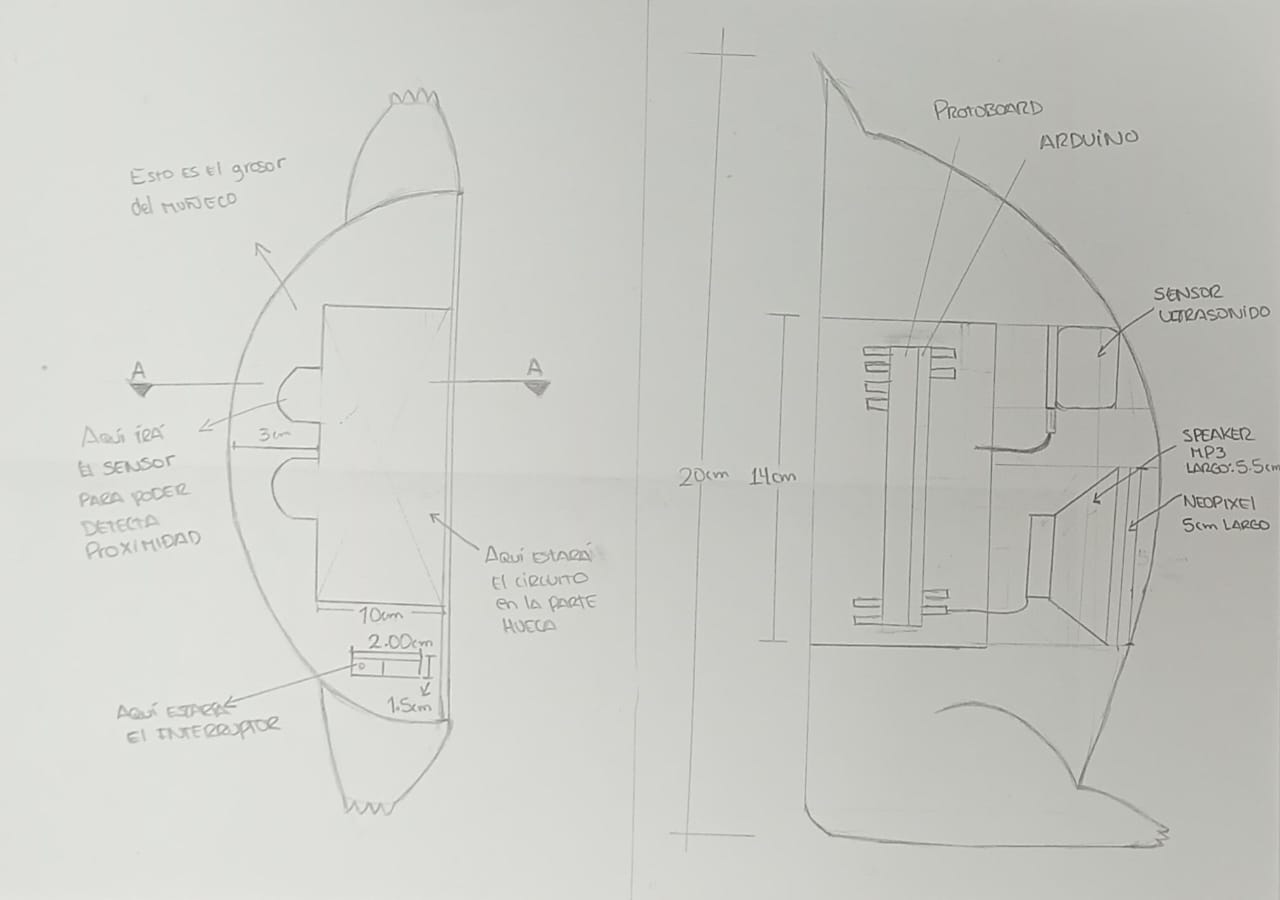 Esto es el grosor
del MUÑECO
A
A
Aquí irá
El SENSOR
PARA PODER
DETECTA
PROXIMIDAD
3cm
Aquí ESTARÁ
El CIRCUITO
en la PARTE
HUECA
10cm
2.00cm
1.5cm
AQUÍ ESTARÁ
El INTERRUPTOR
PROTOBOARD
ARDUINO
SENSOR
ULTRASONIDO
20cm
14cm
SPEAKER
MP3
LARGO: 5.5cm
NEOPIXEl
5cm LARGO